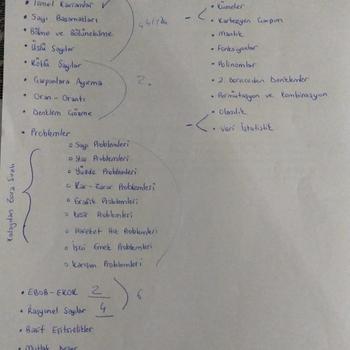 Temel Kavramlar
Sayı Basamakları
Bölme ve Bölünebilme
Üslü Sayılar
Köklü Sayılar
Çarpanlara Ayırma
Oran - Orantı
Denklem Çözme
2.
Problemler
Kolaydan Zora Sıralı
Sayı Problemleri
Yaş Problemleri
Yüzde Problemleri
Kar - Zarar Problemleri
Grafik Problemleri
Kesir Problemleri
Hareket Hız Problemleri
İşçi Emek Problemleri
Karışım Problemleri
EBOB - EKOK 2
Rasyonel Sayılar 4
6
Basit Eşitsizlikler
Mutlak Değer
Kümeler
Kartezyen Çarpım
Mantık
Fonksiyonlar
Polinomlar
2. Dereceden Denklemler
Permütasyon ve Kombinasyon
Olasılık
Veri İstatistik